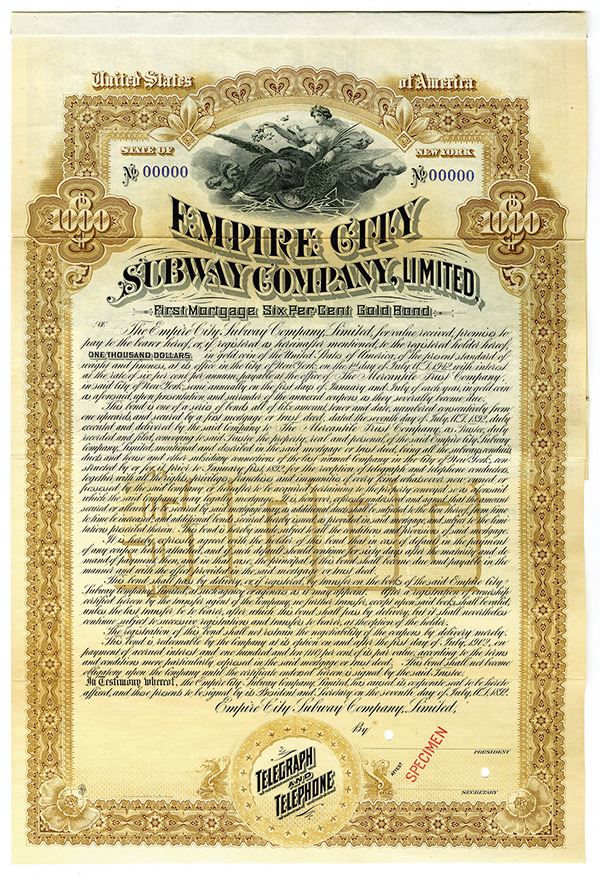 United States of America
STATE OF NEW YORK
No 00000 No 00000
1000 1000
EMPIRE CITY
SUBWAY COMPANY, LIMITED,
First Mortgage Six Per Cent Gold Bond
The Empire City Subway Company, Limited, for value received, promises to
pay to the bearer hereof, or, if registered as hereinafter mentioned, to the registered holder hereof,
ONE THOUSAND DOLLARS in gold coin of the United States of America, of the present standard of
weight and fineness, at its office in the City of New York on the 1st day of July, A.D. 1912, with interest
at the rate of six per cent per annum, payable at the office of The Mercantile Trust Company,
in said City of New York, semi annually on the first days of January and July of each year, in gold coin
as aforesaid, upon presentation and surrender of the annexed coupons, as they severally become due.
This bond is one of a series of bonds all of like amount, tenor and date, numbered consecutively from
one upwards, and secured by a first mortgage or trust deed, dated the seventh day of July, A.D. 1892, duly
executed and delivered by the said Company to The Mercantile Trust Company, as Trustee, duly
recorded and filed, conveying to said Trustee the property, real and personal, of the said Empire City Subway
Company, Limited, mentioned and described in the said mortgage or trust deed, being all the subways, conduits,
ducts and house and other subsidiary connections of the last named Company in the City of New York, con-
structed by or for it prior to January first, 1892, for the reception of telegraph and telephone conductors,
together with all the rights, privileges, franchises and immunities of every kind whatsoever now owned or
possessed by the said Company, or hereafter to be acquired, appertaining to the property conveyed so as aforesaid
which the said Company can legally mortgage.
time to time be increased, and additional bonds secured thereby issued, as provided in said mortgage and subject to the limi-
tations prescribed therein. This bond is issued subject to all the conditions and provisions of said mortgage.
It is hereby expressly agreed with the holder of this bond that in case of default in the payment
of any coupon hereto attached, and if such default should continue for sixty days after maturity and de-
mand of payment, then, in that case, the principal of this bond shall become due and payable in the
manner and with the effect provided in the said mortgage or trust deed.
This bond shall pass by delivery, or, if registered, by transfer on the books of the said Empire City
Subway Company, Limited, at such agency or agencies as it may appoint. After a registration of ownership
certified hereon by the transfer agent of the Company, no further transfer, except upon said books, shall be valid,
unless the last transfer be to bearer, after which this bond shall pass by delivery, but it shall nevertheless
continue subject to successive registrations and transfers to bearer, at the option of the holder.
The registration of this bond shall not restrain the negotiability of the coupons by delivery merely.
This bond is redeemable by the Company at its option on and after the first day of July, 1902, on
payment of accrued interest and one hundred and ten (110) per cent of its par value, according to the terms
and conditions more particularly expressed in the said mortgage or trust deed. This bond shall not become
obligatory upon the Company until the certificate endorsed hereon is signed by the said Trustee.
In Testimony whereof, the Empire City Subway Company, Limited, has caused its corporate seal to be hereto
affixed, and these presents to be signed by its President and Secretary on the seventh day of July, A.D. 1892.
Empire City Subway Company, Limited,
By
PRESIDENT
ATTEST
SPECIMEN
SECRETARY
TELEGRAPH
AND
TELEPHONE
$1000